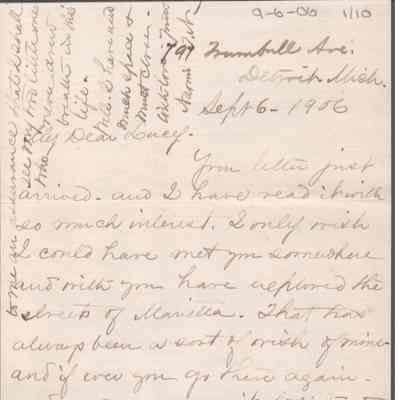 9-6-06 1/10
791 Trumbull Ave.
Detroit Mich.
Sept 6 - 1906
My Dear Lucy.
Your letter just
arrived. and I have read it with
so much interest. I only wish
I could have met you somewhere
and with you have explored the
streets of Marietta. That has
always been a sort of wish of mine
and if ever you go there again.
to me an assurance that I shall
see my two little ones
who never drew
breath in this
life.
much space &
must close.
With love Your